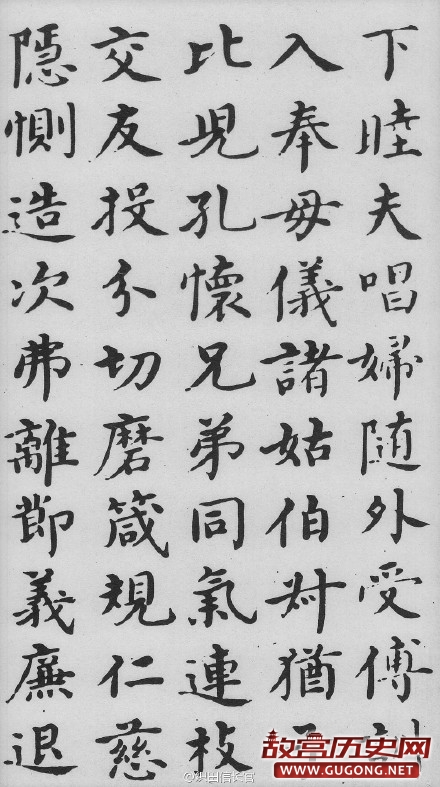 下睦夫唱婦随外受傅訓
入奉母儀諸姑伯叔猶子
比兒孔懷兄弟同氣連枝
交友投分切磨箴規仁慈
隱惻造次弗離節義廉退
故宫历史网
WWW.GUGONG.NET